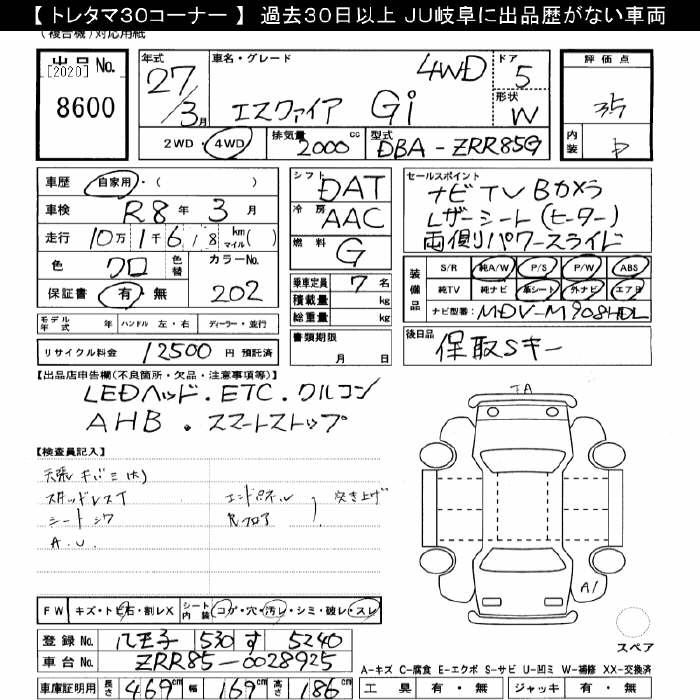 【 トレタマ30コーナー 】 過去30日以上 JU岐阜に出品歴がない車両
(複合機)対応用紙
出品No.
[2020]
8600
年式 27/3月
車名・グレード 4WD
エスクァイア Gi
ドア 5
形状 W
2WD・4WD 排気量 2000cc 型式 DBA-ZRR85G
評価点
3.5
内装
車歴 自家用・( )
車検 R8年 3月
走行 10万1千618 km マイル( )
色 クロ 色替 カラーNo. 202
保証書 有・無
モデル年式 年 ハンドル 左・右 ディーラー・並行
リサイクル料金 12500 円 預託済
シフト DAT
冷房 AAC
燃料 G
乗車定員 7名
積載量 kg
総重量 kg
書類期限
月 日
セールスポイント
ナビTV Bカメラ
Lザーシート(ヒーター)
両側パワースライド
装備品
S/R 純A/W P/S P/W ABS
純TV 純ナビ 革シート 外ナビ エアB
ナビ型番: MDV-M908HDL
後日品 保取Sキー
【出品店申告欄(不良箇所・欠品・注意事項等)】
LEDヘッド.ETC.クルコン
AHB.スマートストップ
【検査員記入】
天張キバミ(大)
スタッドレスT エンドパネル
シートシワ Rフロア 突き上げ
A.U.
JA
A1
スペア
FW キズ・トビ石・割レX シート内装 コゲ・穴・汚レ・シミ・破レ・スレ
登録No. 八王子 530 す 5240
車台No. ZRR85-0028925
車庫証明用 長さ 469cm 幅 169cm 高さ 186cm
A-キズ C-腐食 E-エクボ S-サビ U-凹ミ W-補修 XX-交換済
工具 有・無 ジャッキ 有・無